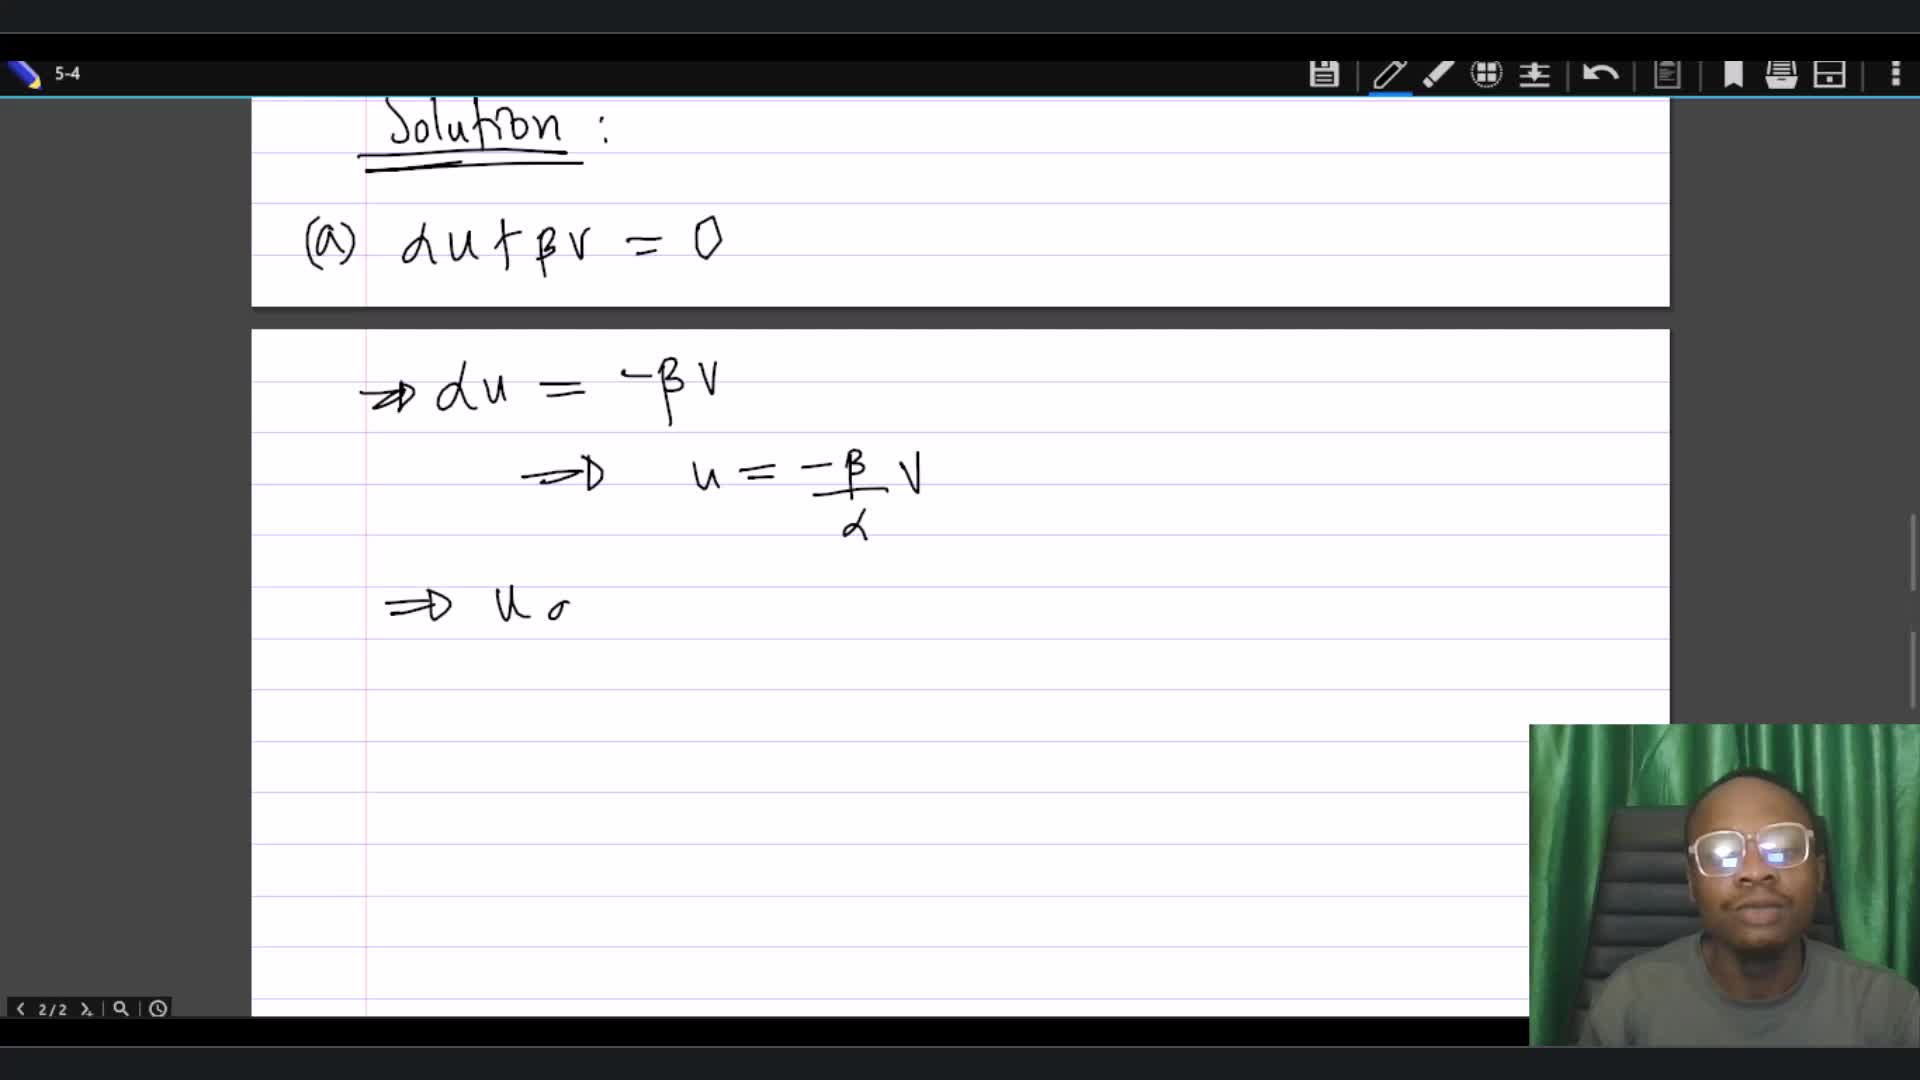 5-4
Solution :
(a) αu + βv = 0
⇒ αu = -βv
⇒ u = -β/α v
⇒ u
2/2